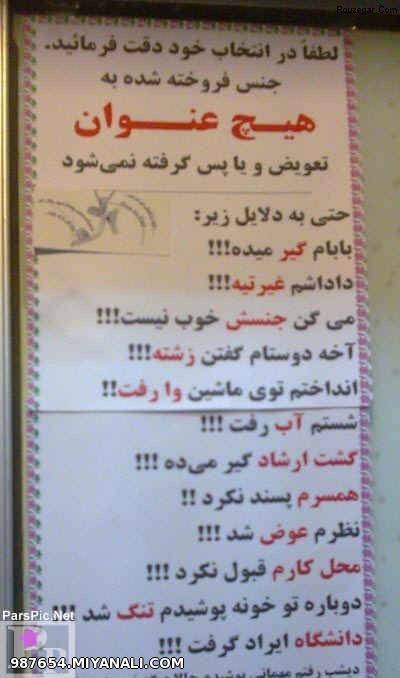 Rouzegar.Com
لطفاً در انتخاب خود دقت فرمائید.
جنس فروخته شده به
هیچ عنوان
تعویض و یا پس گرفته نمی‌شود
حتی به دلایل زیر:
بابام گیر میده!!!
داداشم غیرتیه!!!
می گن جنسش خوب نیست!!!
آخه دوستام گفتن زشته!!!
انداختم توی ماشین وا رفت!!
شستم آب رفت !!!
گشت ارشاد گیر می‌ده !!!
همسرم پسند نکرد !!
نظرم عوض شد !!!
محل کارم قبول نکرد !!!
دوباره تو خونه پوشیدم تنگ شد !!!
دانشگاه ایراد گرفت !!!
دیشب رفتم مهمانی پوشیدم
ParsPic.Net
987654.MIYANALI.COM